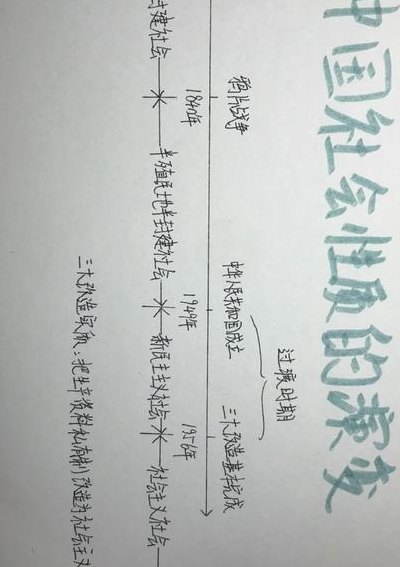 中国社会性质的演变
过渡时期
鸦片战争 中华人民共和国成立 三大改造基本完成
1840年 1949年 1956年
封建社会 半殖民地半封建社会 新民主主义社会 社会主义社会
三大改造实质：把生产资料私有制改造为社会主义